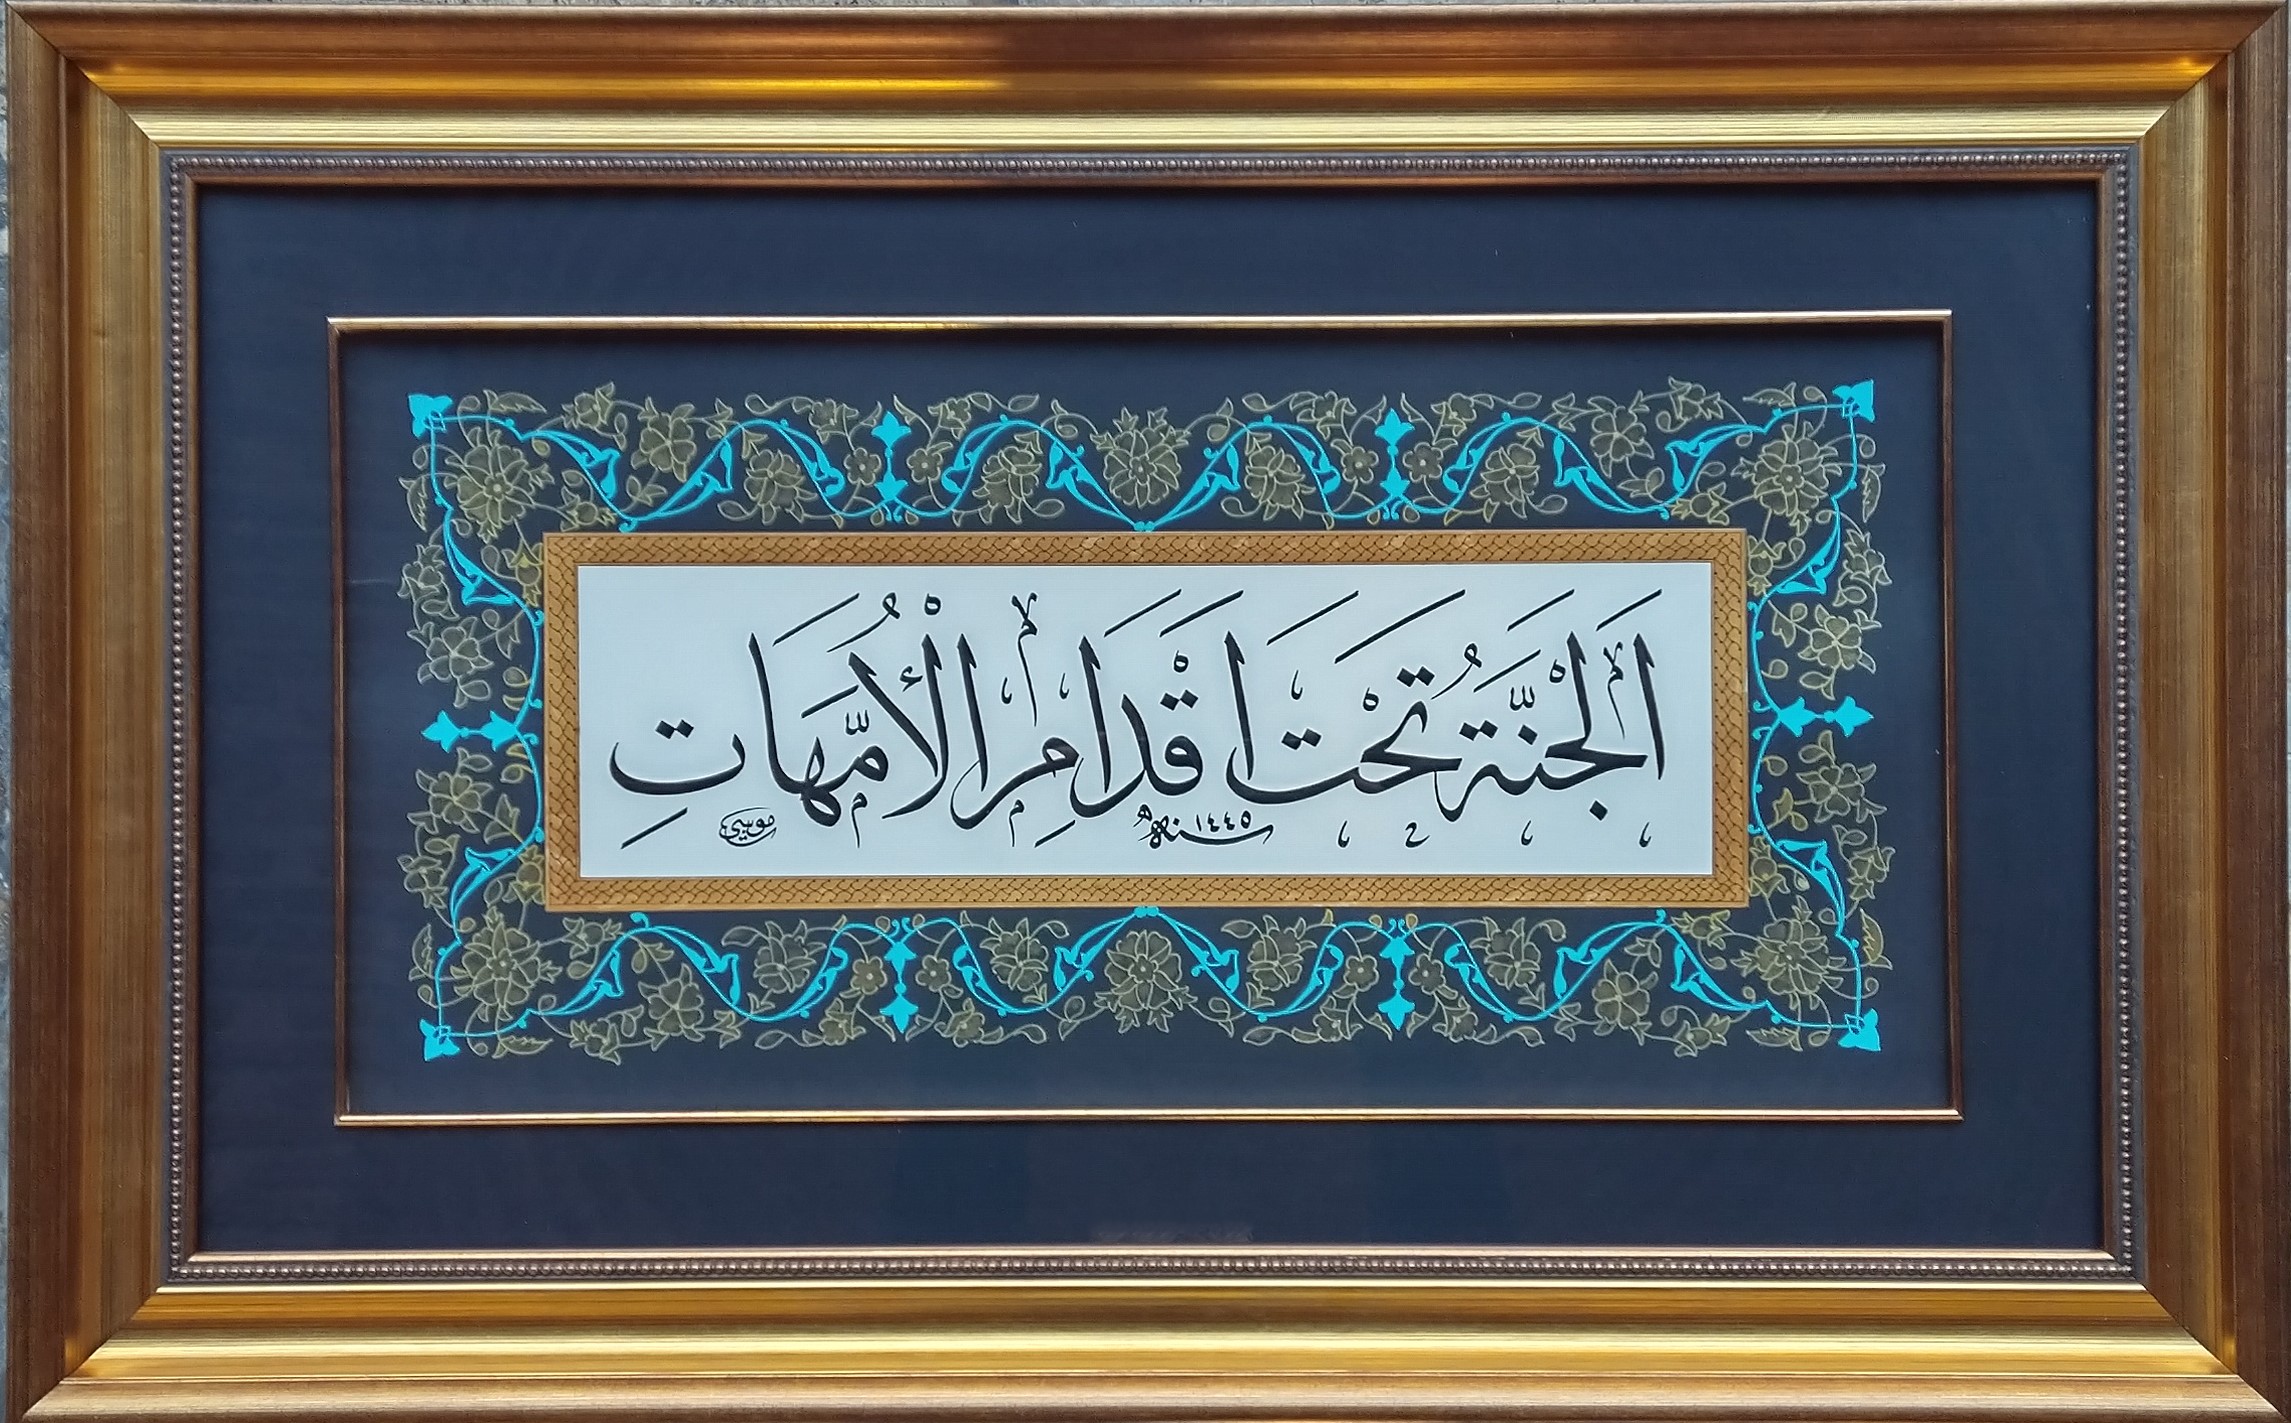 اَلْجَنَّةُ تَحْتَ اَقْدَامِ الْأُمَّهَاتِ
سنه ١٤٤٥
موسى